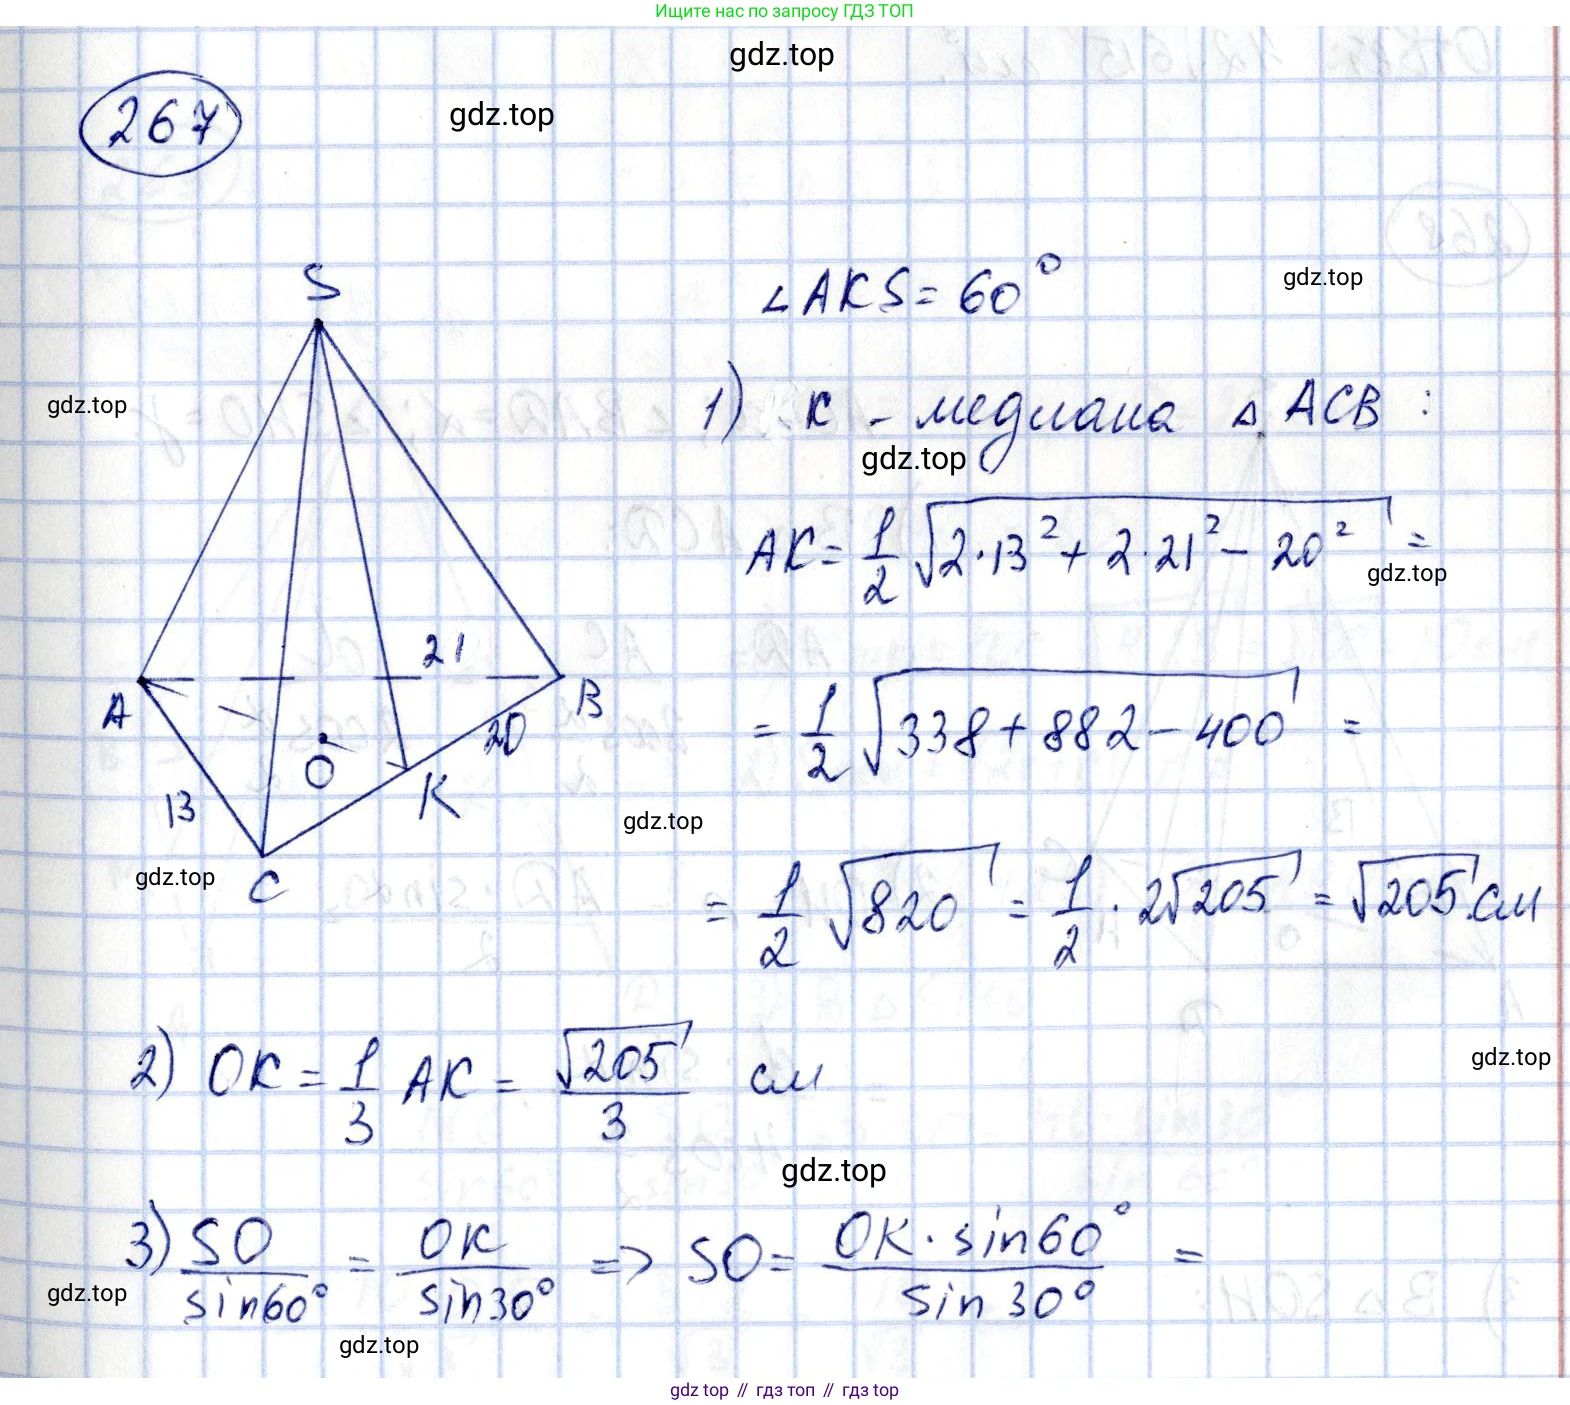 Ищите нас по запросу ГДЗ ТОП
gdz.top
267
gdz.top
S
∠AKS = 60°
gdz.top
gdz.top
1) K - медиана △ ACB :
gdz.top
AK = 1/2 √(2·13² + 2·21² - 20²) =
gdz.top
21
A
B
20
= 1/2 √(338 + 882 - 400) =
O
K
13
gdz.top
gdz.top
C
= 1/2 √820 = 1/2 · 2√205 = √205 см
2) OK = 1/3 AK = √205/3 см
gdz.top
gdz.top
3) SO/sin60° = OK/sin30° => SO = OK·sin60°/sin30° =
gdz.top
gdz.top
gdz top // гдз топ // гдз top